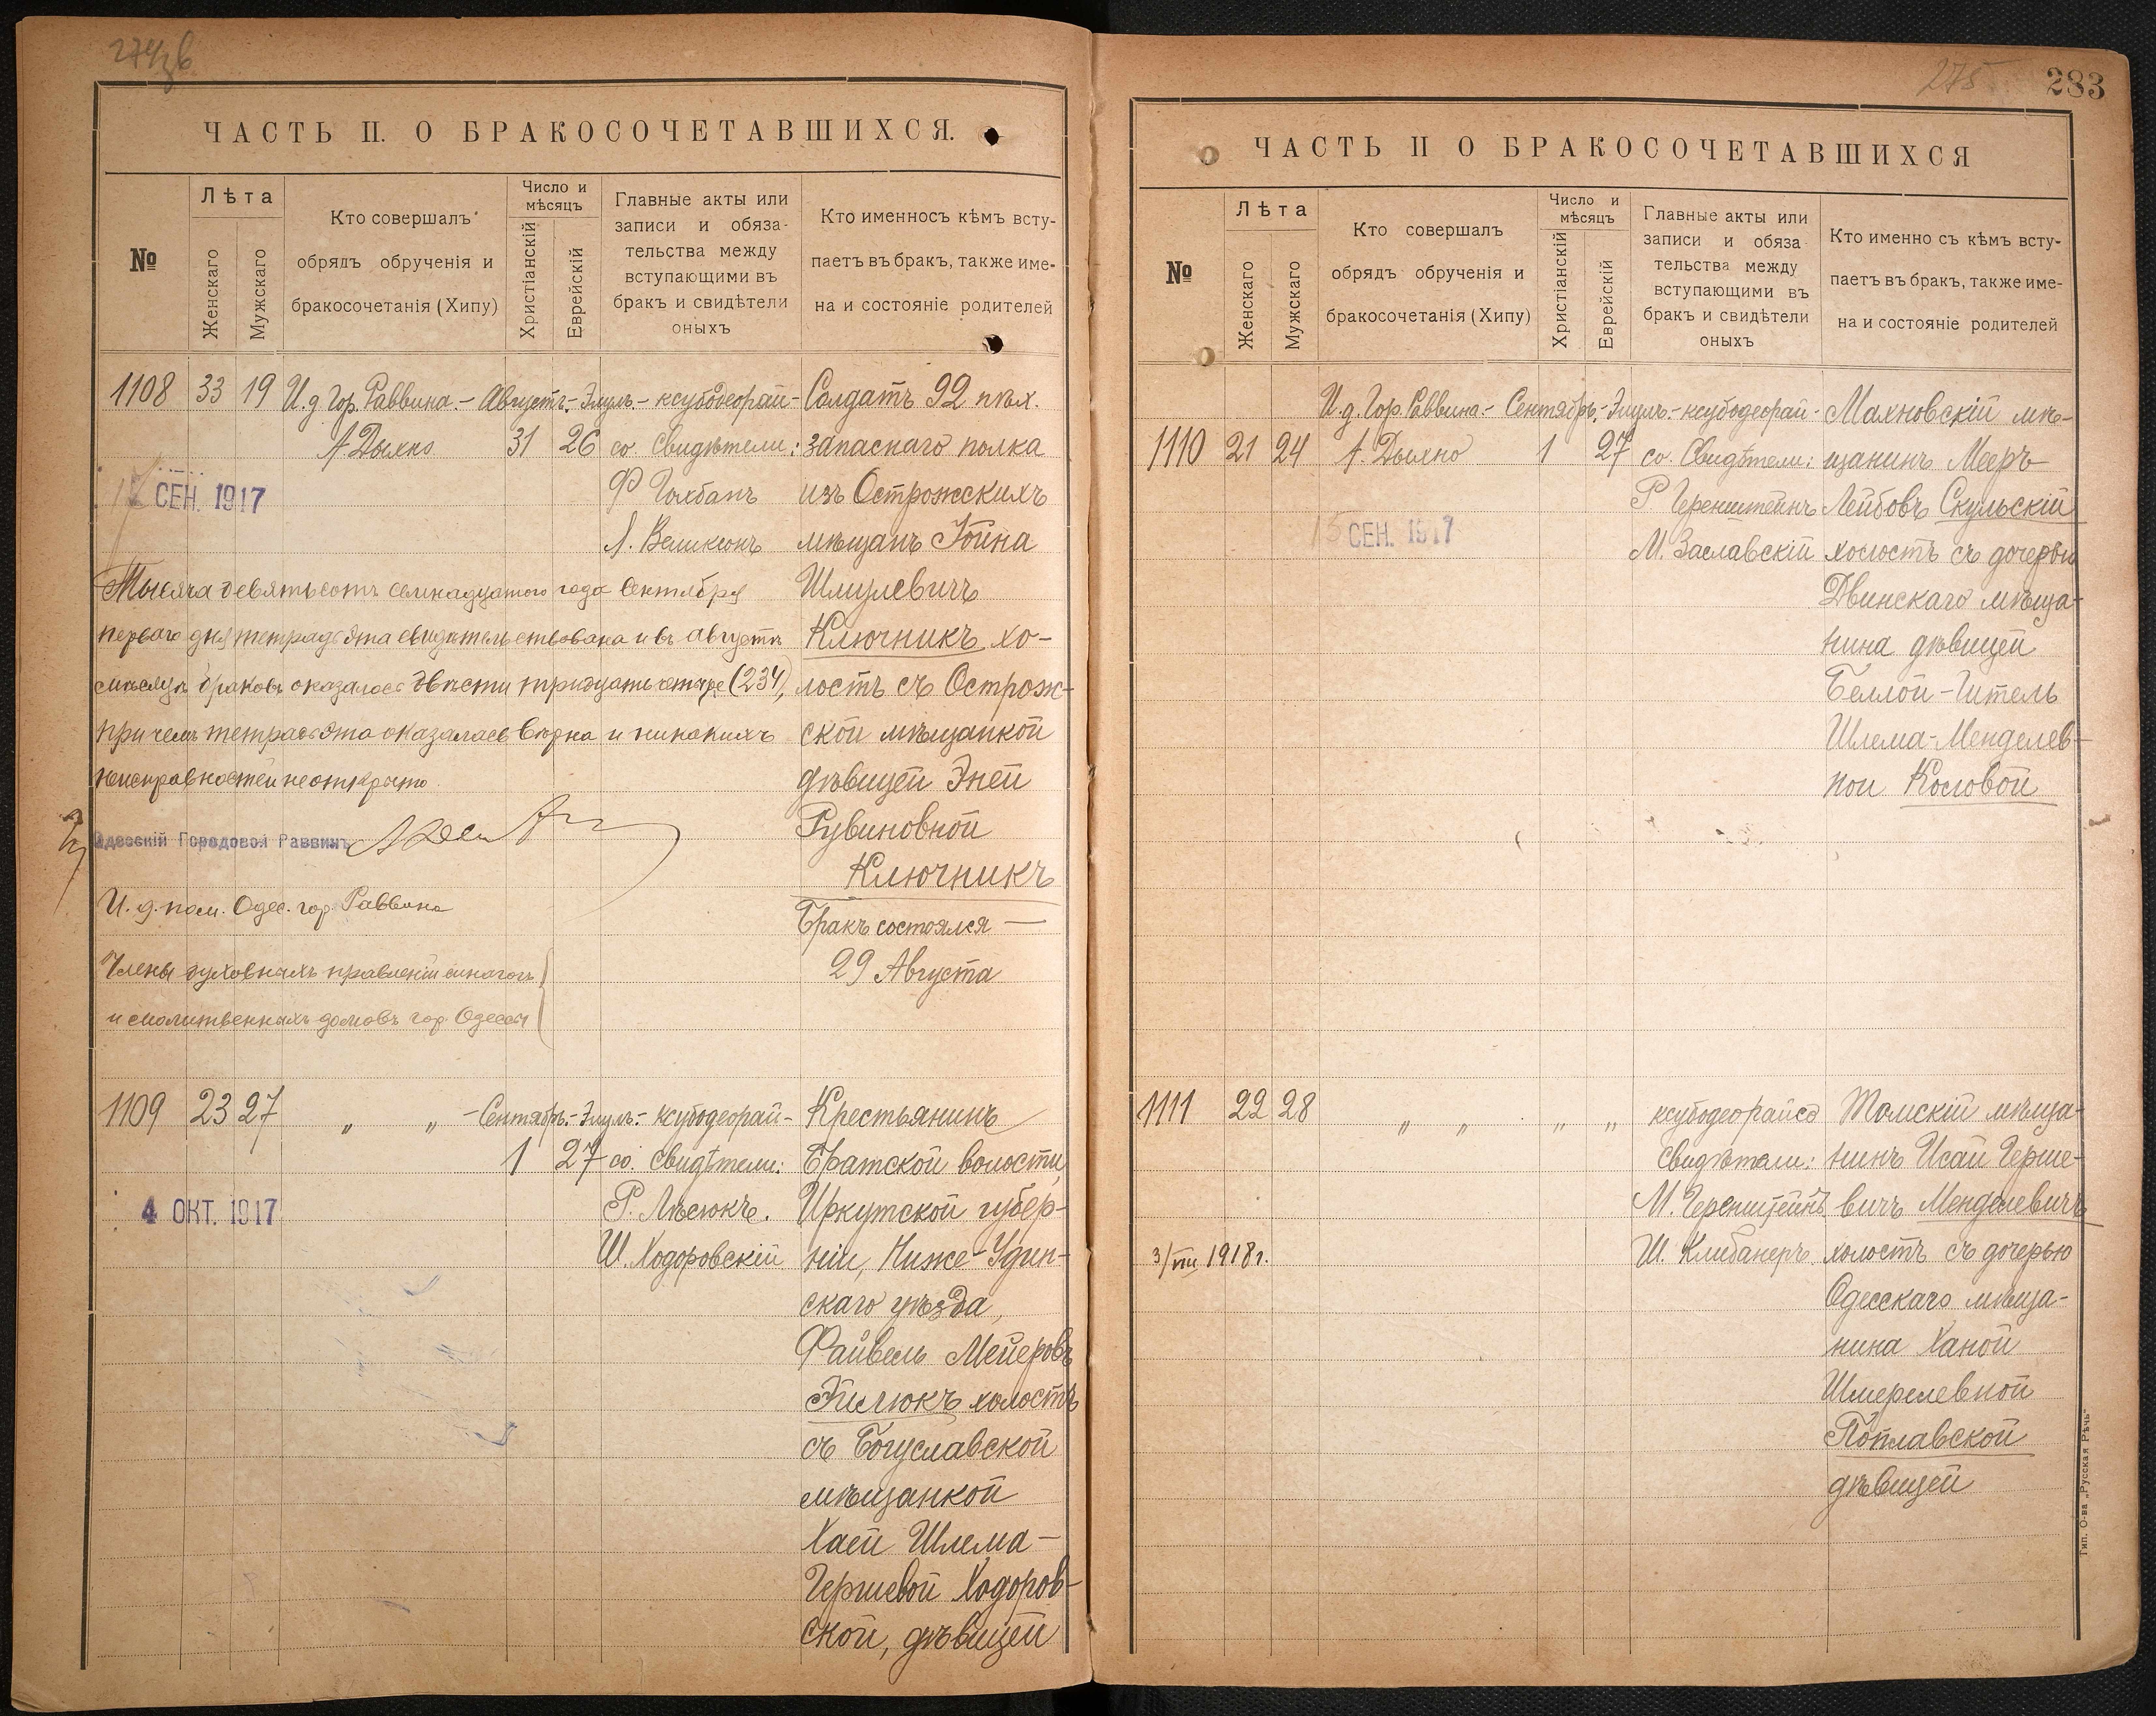 ЧАСТЬ II. О БРАКОСОЧЕТАВШИХСЯ.
№
Лѣта
Женскаго
Мужскаго
Кто совершалъ
обрядъ обрученія и
бракосочетанія (Хипу)
Число и
мѣсяцъ
Христіанскій
Еврейскій
Главные акты или
записи и обяза-
тельства между
вступающими въ
бракъ и свидѣтели
оныхъ
Кто именносъ кѣмъ всту-
паетъ въ бракъ, также име-
на и состояніе родителей
1108 33 19 И.д Гор. Раввина.- Августъ.- Элулъ.- ксубодеорай- Солдатъ 92 пѣх.
А Дыхно 31 26 со Свидѣтели: запаснаго полка
СЕН. 1917
изъ Острожскихъ
мѣщанъ Іойна
Тысяча девятьсотъ семнадцатого года Сентября Шмулевичъ
перваго дня тетрадь эта свидѣтельствована и въ августѣ Ключникъ, хо-
мѣсяцѣ браковъ оказалось двѣсти тридцать четыре (234), лостъ съ Острож-
причемъ тетрадь эта оказалась вѣрна и никакихъ ской мѣщанкой
неисправностей не открыто. дѣвицей Эней
Одесскій Городовой Раввинъ Рувиновной
Ключникъ
И. д. пом. Одес. гор. Раввина
Бракъ состоялся —
29 Августа
Члены духовныхъ правленій синагогъ
и молитвенныхъ домовъ гор Одессы
1109 23 27 „ „ -Сентябрь.- Элулъ.- ксубодеорай- Крестьянинъ
1 27 со. Свидѣтели: Братской волости,
4 ОКТ. 1917
Иркутской губер-
Ш. Ходоровскій ніи, Ниже-Удин-
скаго уѣзда,
Файвель Мейеровъ
холостъ
съ Богуславской
мѣщанкой
Хаей Шлема-
Гершевой Ходоров-
ской, дѣвицей
275 283
ЧАСТЬ II О БРАКОСОЧЕТАВШИХСЯ
№
Лѣта
Женскаго
Мужскаго
Кто совершалъ
обрядъ обрученія и
бракосочетанія (Хипу)
Число и
мѣсяцъ
Христіанскій
Еврейскій
Главные акты или
записи и обяза
тельства между
вступающими въ
бракъ и свидѣтели
оныхъ
Кто именно съ кѣмъ всту-
паетъ въ бракъ, также име-
на и состояніе родителей
И.д. Гор. Раввина.- Сентябрь.- Элулъ.- ксубодеорай- Махновскій мѣ-
1110 21 24 А. Дыхно 1 27 со. Свидѣтели: щанинъ Мееръ
Р Геренштейнъ Лейбовъ Скульскій
СЕН. 1917
М. Заславскій холостъ съ дочерью
Двинскаго мѣща-
нина дѣвицей
Беллой-Гитель
Шлема-Менделев-
ной Косовой
1111 22 28 „ „ „ „ ксубодеорайсо Томскій мѣща-
Свидѣтели: нинъ Исай Герше-
М. Геренштейнъ. вичъ Менделевичъ
3/VIII 1918 г.
Ш. Клибанеръ. холостъ съ дочерью
Одесскаго мѣща-
нина Ханой
Шмерелевной
Поплавской
дѣвицей
Тип. О-ва „Русская Рѣчь“